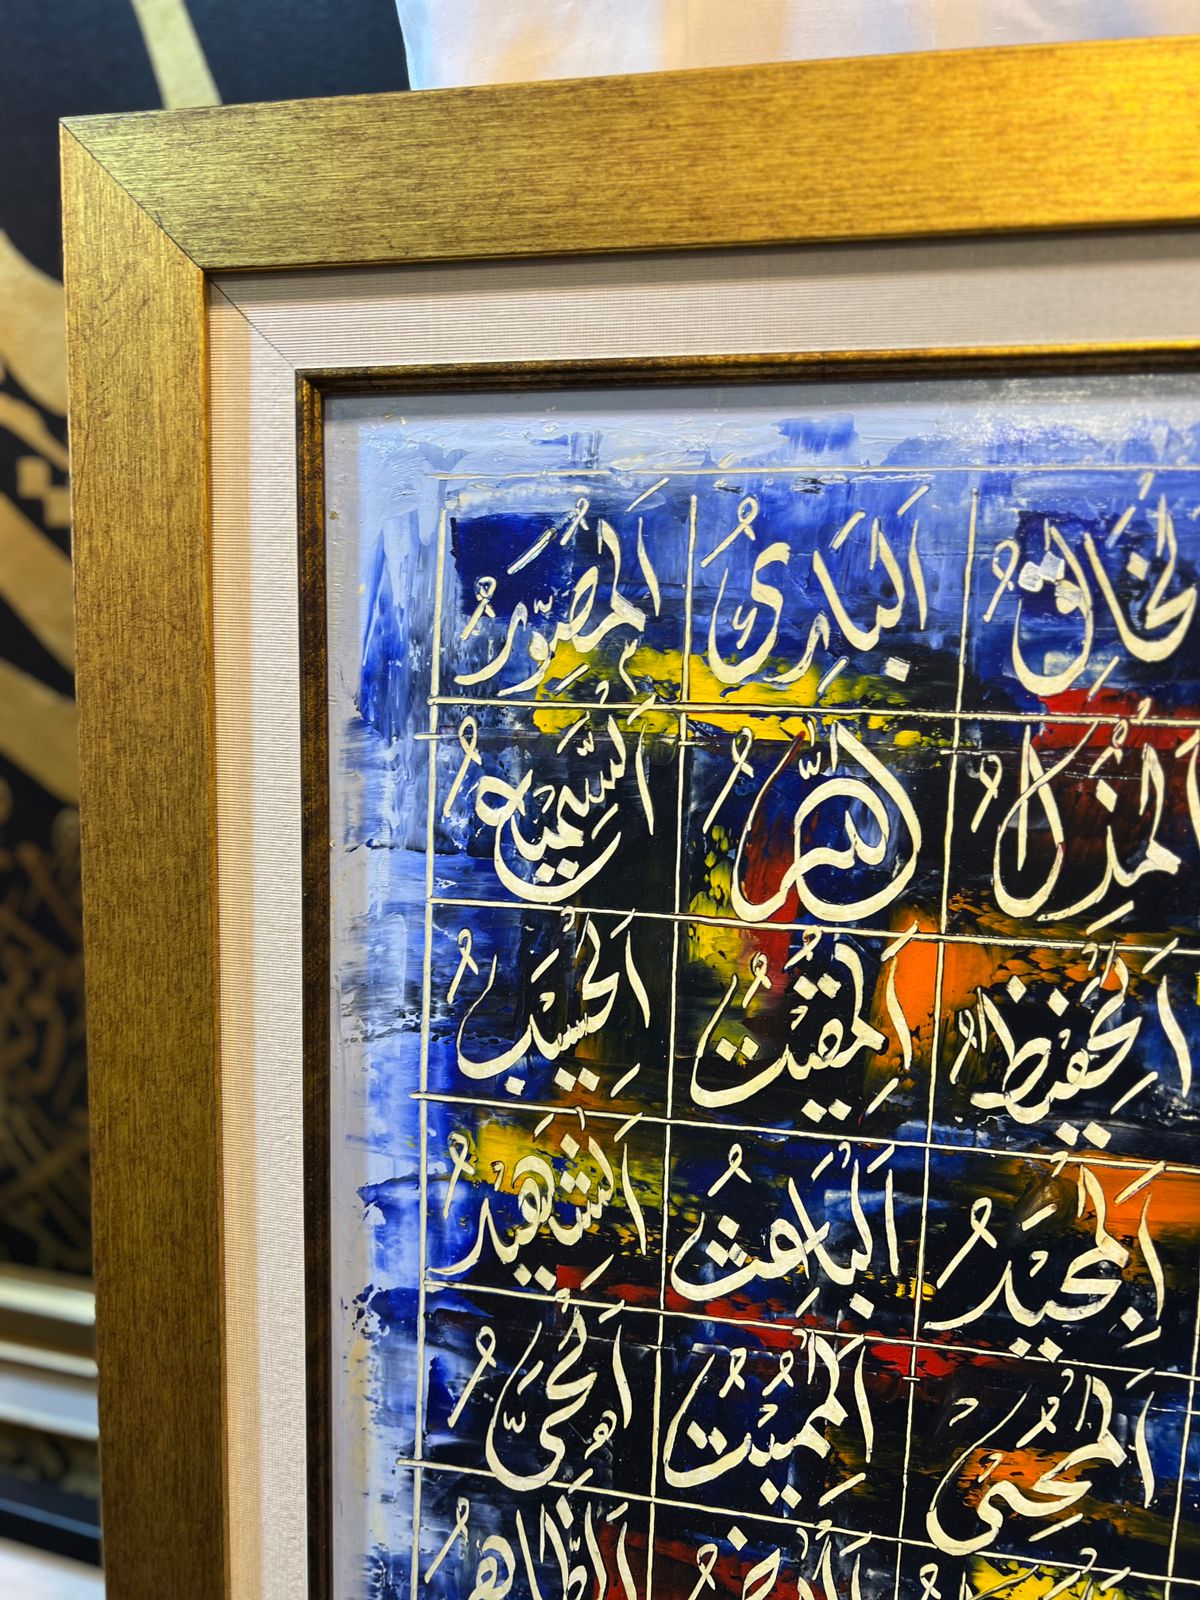 لخَالِقُ البَارِىُ المُصَوِّرُ
المُذِلُّ السَّمِيعُ
الحَفِيظُ المُقِيتُ الحَسِيبُ
المَجِيدُ البَاعِثُ الشَّهِيدُ
المُحْيِى المُمِيتُ الحَىُّ
الظَّاهِرُ